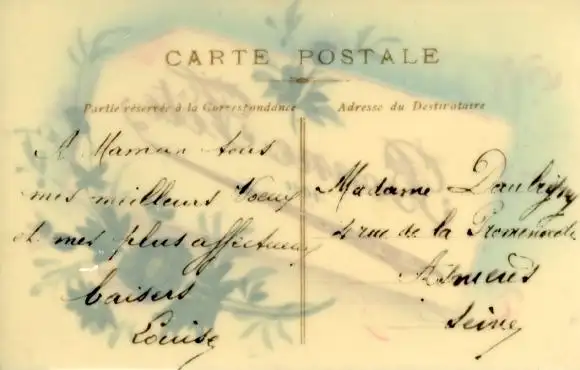 CARTE POSTALE
Partie réservée à la Correspondance
Adresse du Destinataire
A Maman tous
mes meilleurs Voeux
et mes plus affectueux
baisers
Louise
Madame Daubigny
rue de la Promenade
Asnières
Seine